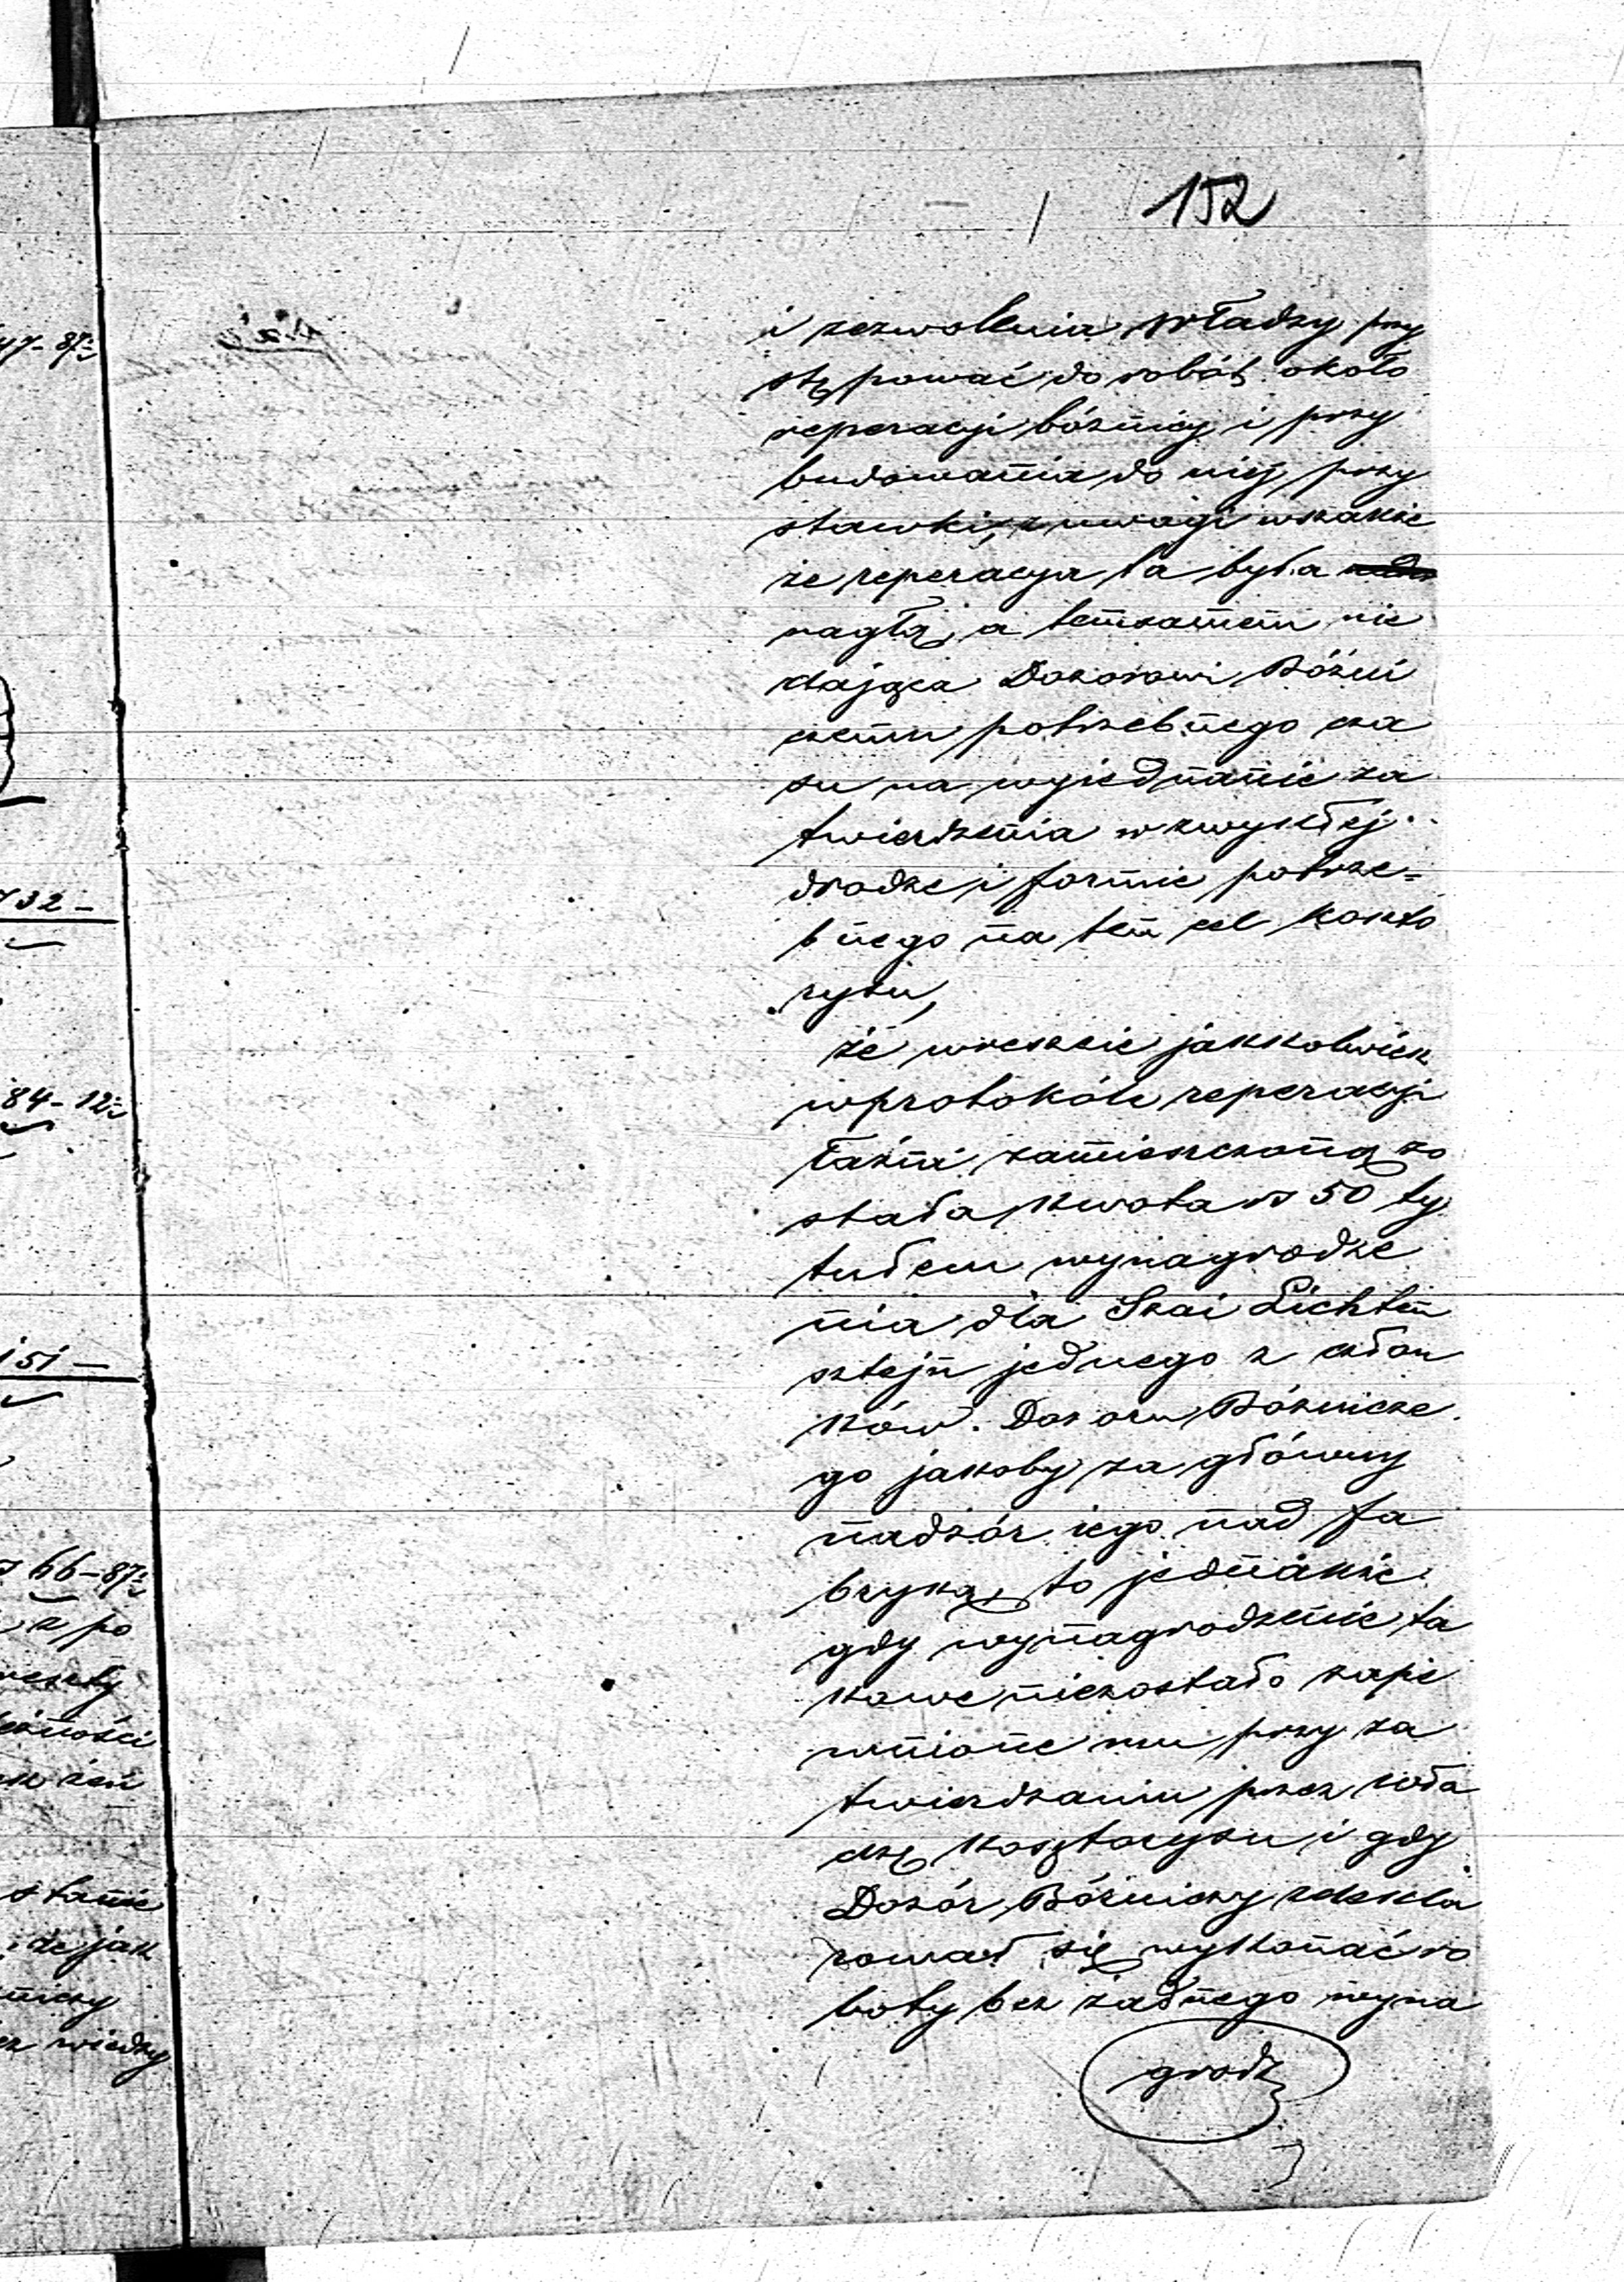 152
i zezwolenia władzy przy
stępować do robót około
reperacyi bóżnicy i przy
budowania do niéj przy
stawki, z uwagi wszakże
że reperacya ta była
nagłą, a temsamem nie
dająca Dozorowi Bóżni
czemu potrzebnego cza
su na wyjednanie za
twierdzenia w zwykłej
drodze i formie potrze=
bnego na ten cel koszto
rysu,
że wreszcie jakkolwiek
w protokóle reperacyi
łaźni zamieszczoną zo
stała kwota rs 50 ty
tułem wynagrodze
nia dla Szai Lichten
sztejn jednego z człon
ków Dozoru Bóżnicze
go jakoby za główny
nadzór jego nad fa
bryką, to jednakże
gdy wynagrodzenie ta
kowe niezostało zape
wnione mu przy za
twierdzaniu przez wła
dzę kosztorysu i gdy
Dozór Bóżniczy zdekla
rował się wykonać ro
boty bez żadnego wyna
grodz
47-87½
732 -
84-12½
151 -
66-87½
z po
reszty
stanie
że jak
wiedzy